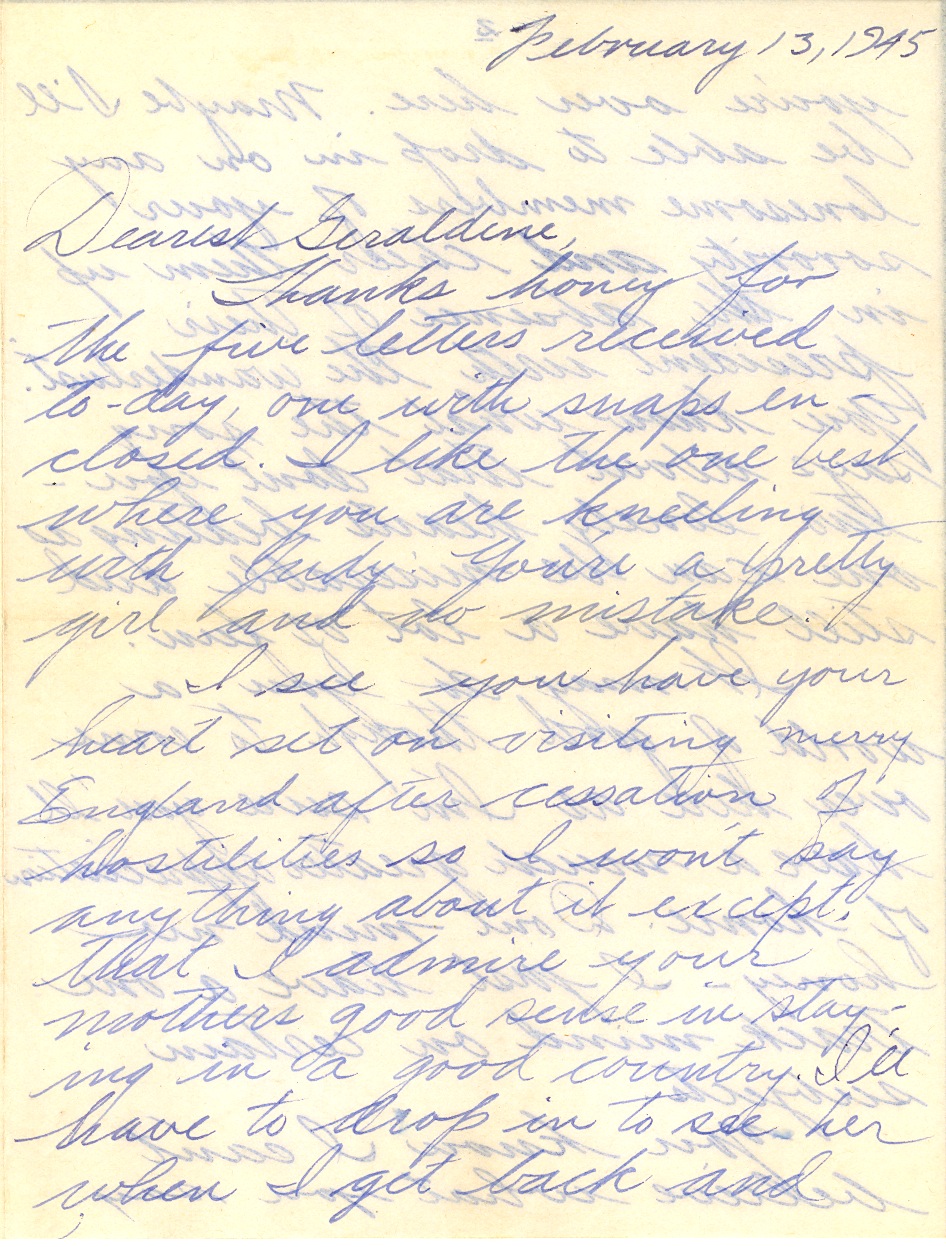 February 13, 1945
Dearest Geraldine,
Thanks honey for
the five letters received
to-day, one with snaps en-
closed. I like the one best
where you are kneeling
with Judy. You're a pretty
girl and no mistake.
I see you have your
heart set on visiting merry
England after cessation of
hostilities so I won't say
anything about it except
that I admire your
mothers good sense in stay-
ing in a good country. I'll
have to drop in to see her
when I get back and